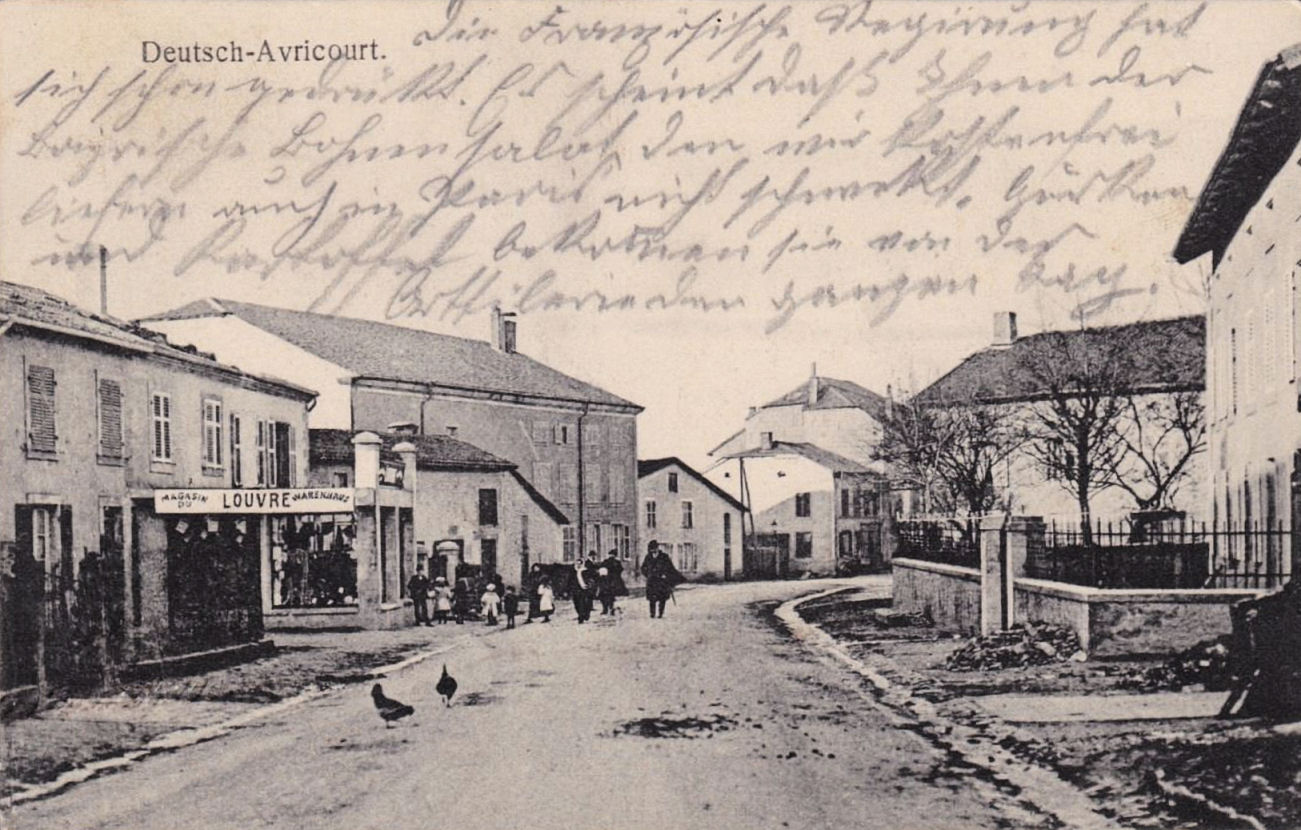 Deutsch-Avricourt.
Die Französische Regirung hat
sich schon gedrükt. Es scheint daß Ihnen der
Bayrische Bohnensalat, den wir kostenfrei
liefern auch in Paris nicht schmekt. Gurken
und Kartoffel bekommen sie von der
Artilerie den ganzen Tag.
MAGASIN DU LOUVRE WARENHAUS